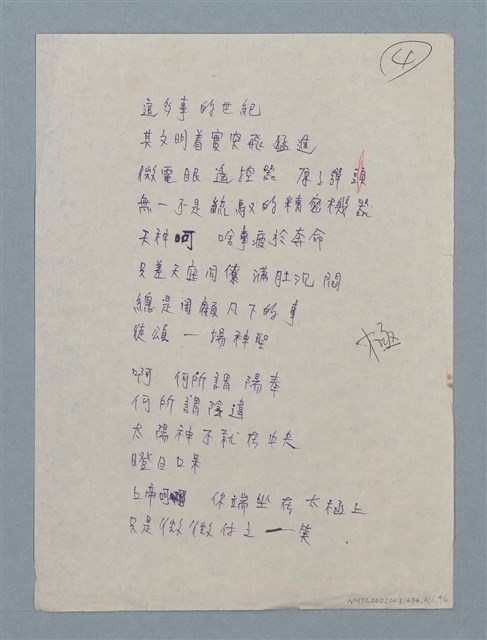 4
這多事的世紀
其文明着實突飛猛進
微電眼 遙控器 原子彈頭
無一不是統馭的精密機器
天神呵 啥事疲於奔命
只差天庭同僚 滿肚沉悶
總是罔顧凡下的事
徒頌一場神聖
極
啊 何所謂陽奉
何所謂陰違
太陽神不就在中央
瞪目口呆
上帝呵 你端坐在太極上
只是微微付之一笑